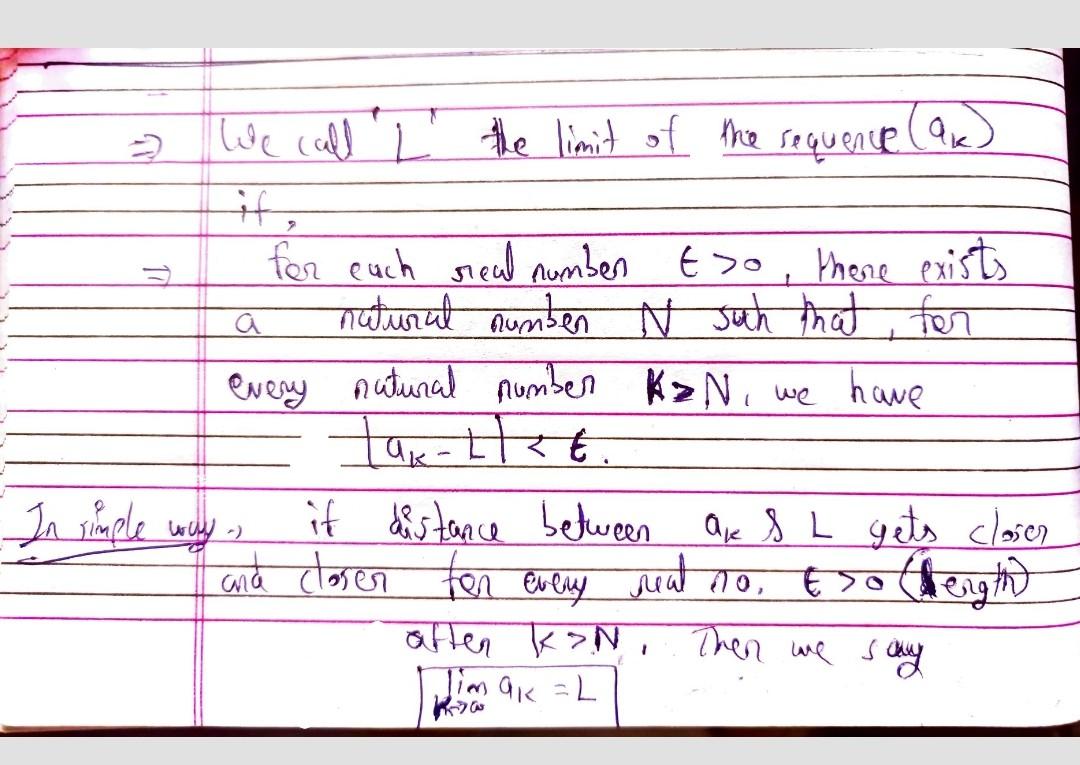 ⇒ We call "L" the limit of the sequence (aₖ)
if,
⇒ for each real number ε > 0, there exists
a natural number N such that, for
every natural number K ≥ N, we have
|aₖ - L| < ε.
In simple way → if distance between aₖ & L gets closer
and closer for every real no. ε > 0 (length)
after k > N, Then we say
lim aₖ = L
K→∞